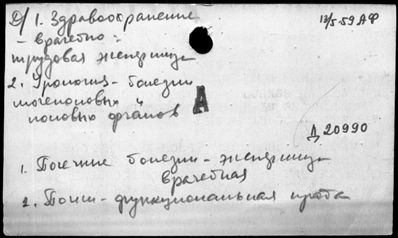 Д/ 1. Здравоохранение
13/5-59 АФ
- врачебно-
трудовая экспертиза
2. Урология - болезни
мочеполовых и
половых органов А
Д 20990
1. Почечные болезни - экспертиза
врачебная
2. Почки - функциональная проба